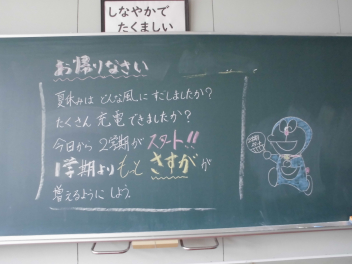 しなやかで
たくましい
お帰りなさい
夏休みは どんな風に すごしましたか?
たくさん 充電 できましたか?
今日から 2学期が スタート!!
1学期より もっと さすが が
増えるように しよう